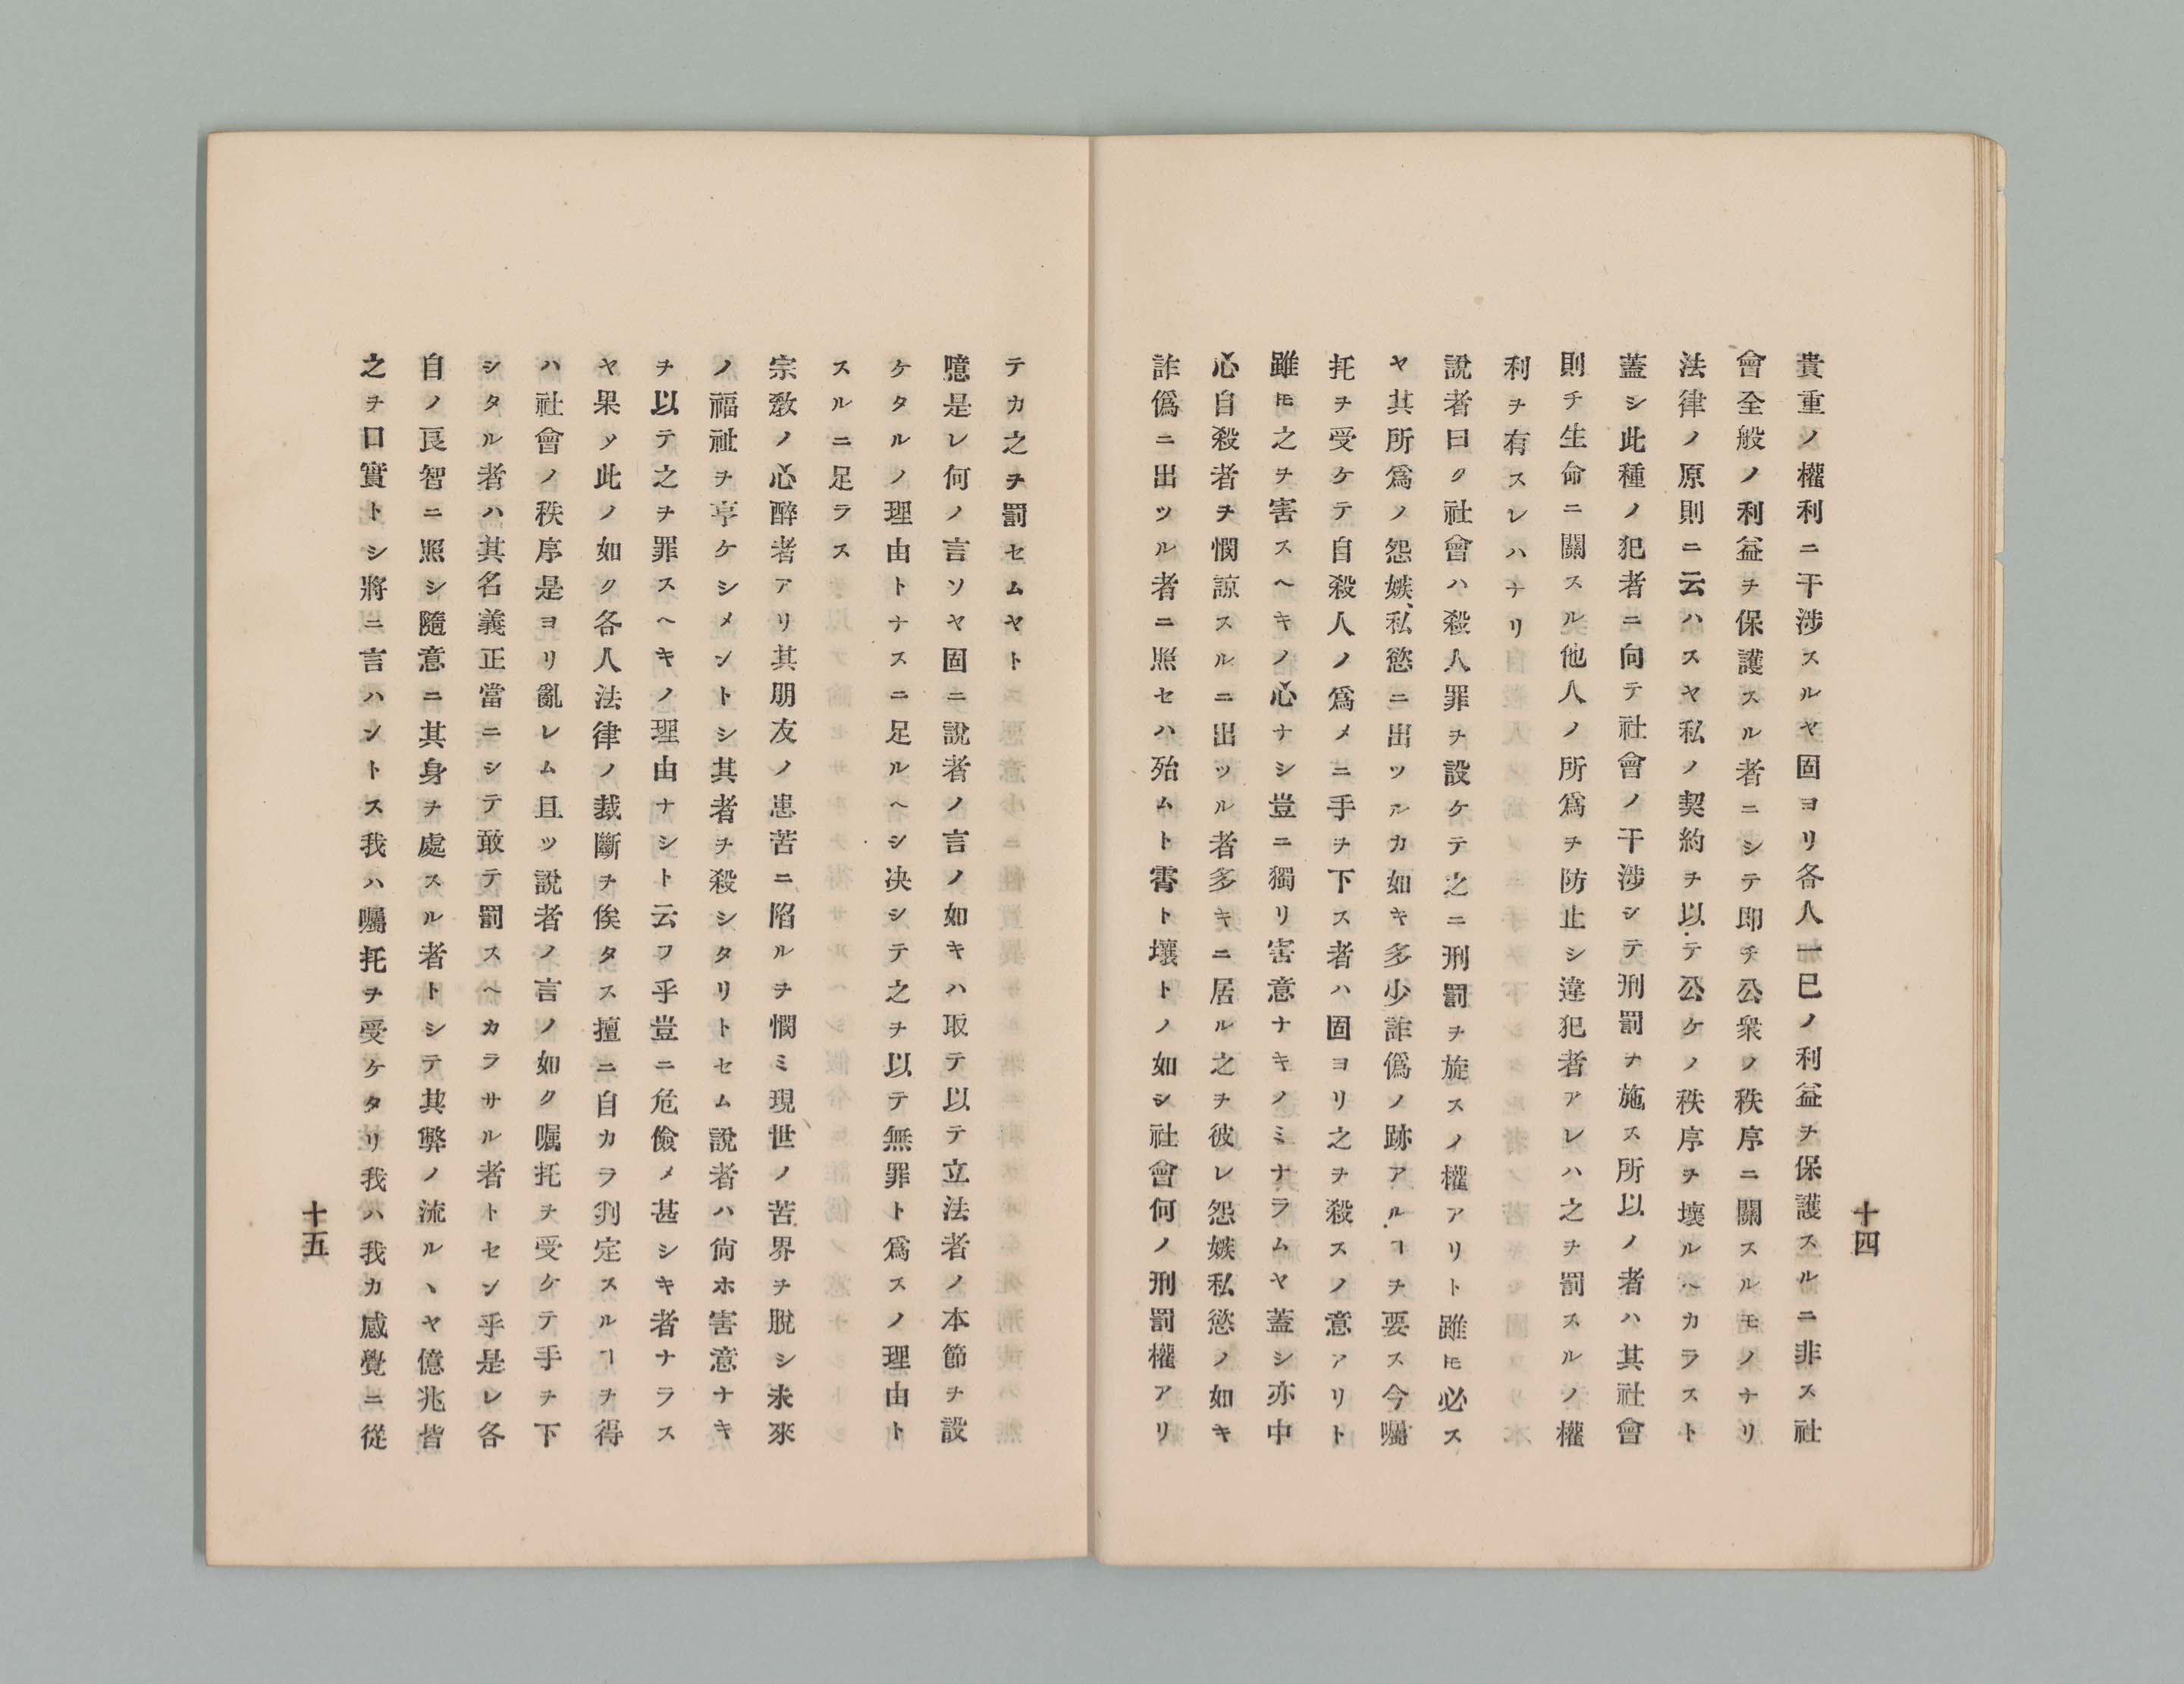 十四
貴重ノ權利ニ干渉スルヤ固ヨリ各人一已ノ利益ヲ保護スルニ非ス社
會全般ノ利益ヲ保護スル者ニシテ即チ公衆ノ秩序ニ關スルモノナリ
法律ノ原則ニ云ハスヤ私ノ契約ヲ以テ公ケノ秩序ヲ壞ルヘカラスト
蓋シ此種ノ犯者ニ向テ社會ノ干渉シテ刑罰ヲ施ス所以ノ者ハ其社會
則チ生命ニ關スル他人ノ所爲ヲ防止シ違犯者アレハ之ヲ罰スルノ權
利ヲ有スレハナリ
說者曰ク社會ハ殺人罪ヲ設ケテ之ニ刑罰ヲ旋スノ權アリト雖𪜈必ス
ヤ其所爲ノ怨嫉、私慾ニ出ツルカ如キ多少詐僞ノ跡アルヿヲ要ス今囑
托ヲ受ケテ自殺人ノ爲メニ手ヲ下ス者ハ固ヨリ之ヲ殺スノ意アリト
雖𪜈之ヲ害スヘキノ心ナシ豈ニ獨リ害意ナキノミナラムヤ蓋シ亦中
心自殺者ヲ憫諒スルニ出ツル者多キニ居ル之ヲ彼レ怨嫉私慾ノ如キ
詐僞ニ出ツル者ニ照セハ殆ムト霄ト壤トノ如シ社會何ノ刑罰權アリ
テカ之ヲ罰セムヤト
噫是レ何ノ言ソヤ固ニ說者ノ言ノ如キハ取テ以テ立法者ノ本節ヲ設
ケタルノ理由トナスニ足ルヘシ决シテ之ヲ以テ無罪ト爲スノ理由ト
スルニ足ラス
宗敎ノ心醉者アリ其朋友ノ患苦ニ陷ルヲ憫ミ現世ノ苦界ヲ脫シ未來
ノ福祉ヲ享ケシメントシ其者ヲ殺シタリトセム說者ハ尙ホ害意ナキ
ヲ以テ之ヲ罪スヘキノ理由ナシト云フ乎豈ニ危儉メ甚シキ者ナラス
ヤ果ソ此ノ如ク各人法律ノ裁斷ヲ俟タス擅ニ自カラ判定スルヿヲ得
ハ社會ノ秩序是ヨリ亂レム且ツ說者ノ言ノ如ク囑托ヲ受ケテ手ヲ下
シタル者ハ其名義正當ニシテ敢テ罰スヘカラサル者トセン乎是レ各
自ノ良智ニ照シ隨意ニ其身ヲ處スル者トシテ其弊ノ流ルヽヤ億兆皆
之ヲ口實トシ將ニ言ハントス我ハ囑托ヲ受ケタリ我ハ我カ感覺ニ從
十五